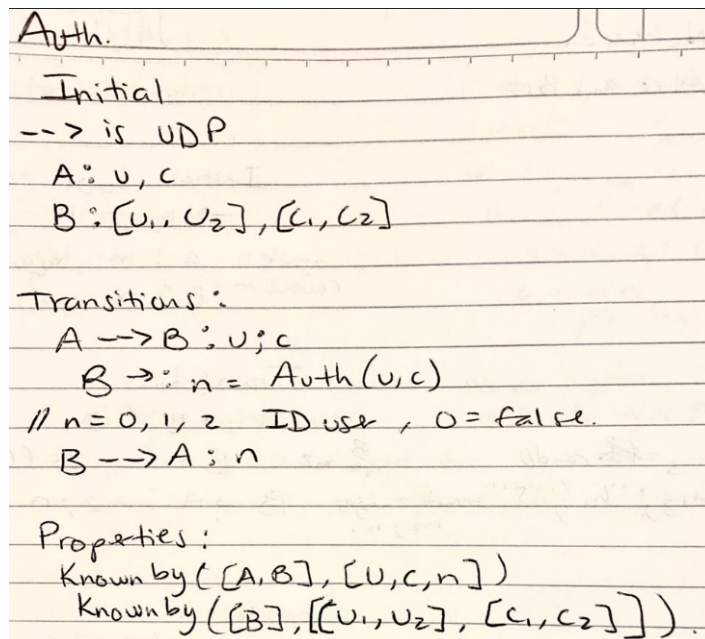 Auth.
Initial
--> is UDP
A: U, C
B: [U1, U2], [C1, C2]
Transitions:
A --> B: U; C
B →: n = Auth(U, C)
// n = 0, 1, 2 ID user, 0 = false.
B --> A: n
Properties:
Known by ([A, B], [U, C, n])
Known by ([B], [[U1, U2], [C1, C2]]).